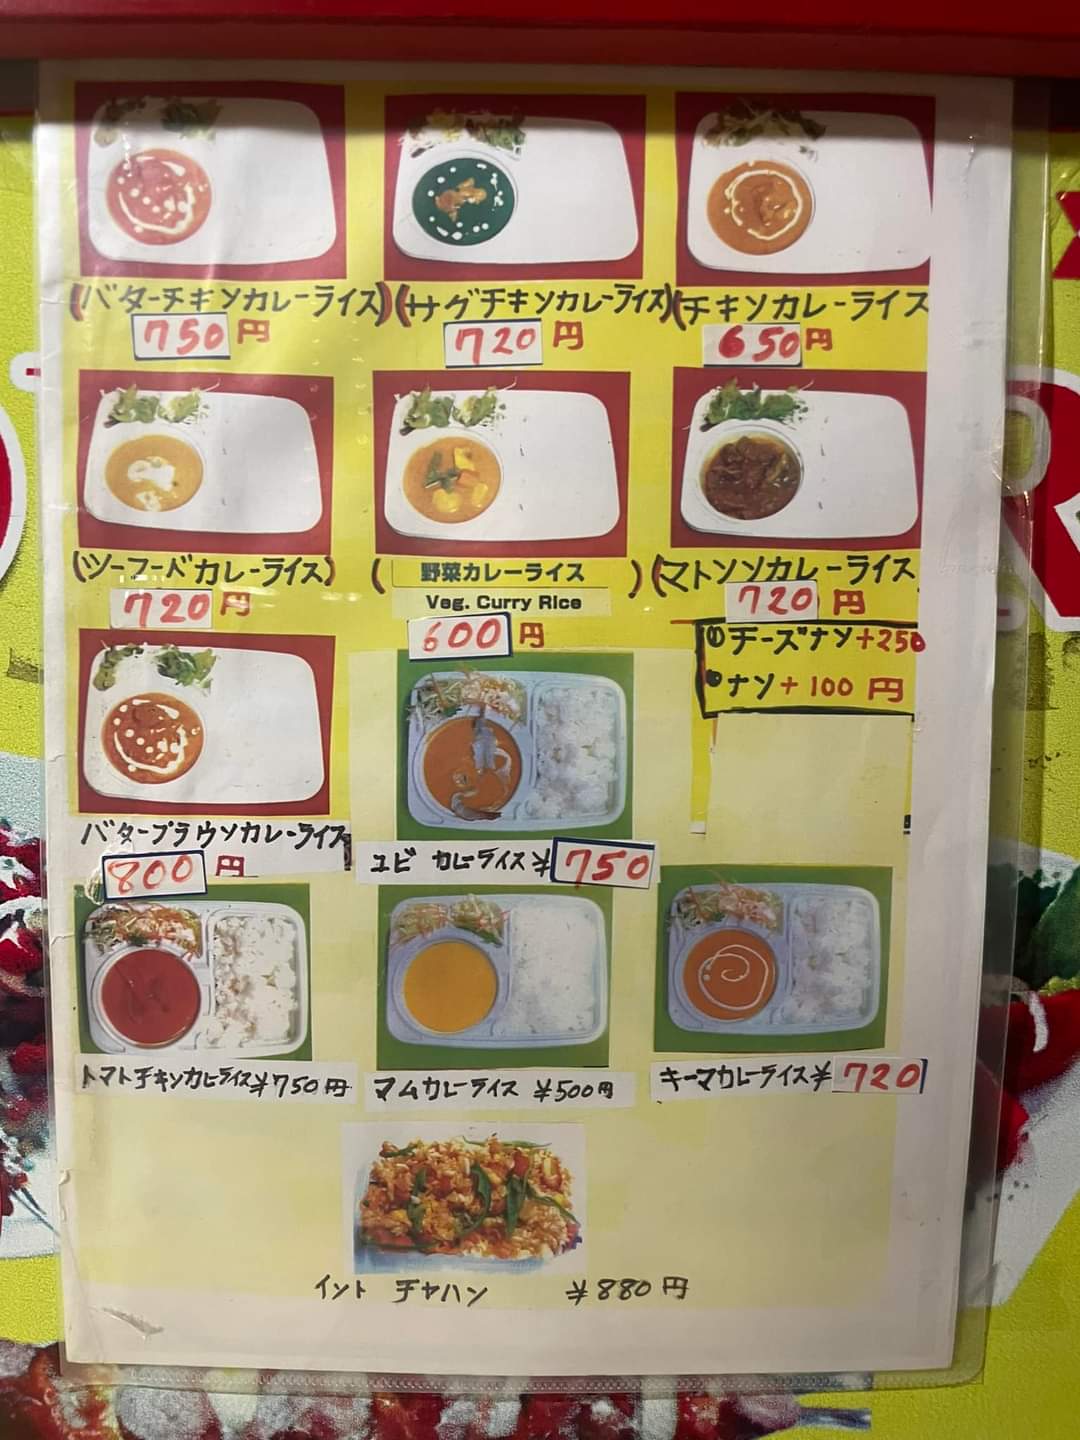 (バターチキンカレーライス)
750円
(サグチキンカレーライス)
720円
(チキンカレーライス
650円
(ツーフードカレーライス)
720円
(野菜カレーライス)
Veg. Curry Rice
600円
(マトソソカレーライス
720円
①チーズナン+250
●ナン+100円
バターブラウンカレーライス
800円
ユビ カレーライス¥750
トマトチキンカレーライス¥750円
マムカレーライス ¥500円
キーマカレーライス¥720
イント チャハン ¥880円